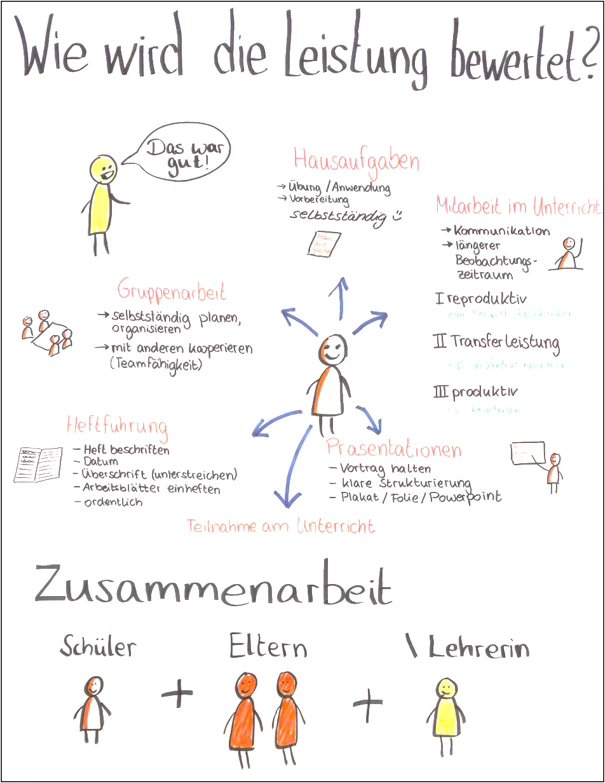 Wie wird die Leistung bewertet?
Das war
gut!
Hausaufgaben
→ Übung / Anwendung
→ Vorbereitung
selbstständig
Mitarbeit im Unterricht
→ Kommunikation
→ längerer
Beobachtungs-
zeitraum
I reproduktiv
II Transferleistung
III produktiv
Gruppenarbeit
→ selbstständig planen,
organisieren
→ mit anderen kooperieren
(Teamfähigkeit)
Heftführung
- Heft beschriften
- Datum
- Überschrift (unterstreichen)
- Arbeitsblätter einheften
- ordentlich
Präsentationen
- Vortrag halten
- klare Strukturierung
- Plakat / Folie / Powerpoint
Teilnahme am Unterricht
Zusammenarbeit
Schüler
Eltern
\ Lehrerin
+
+